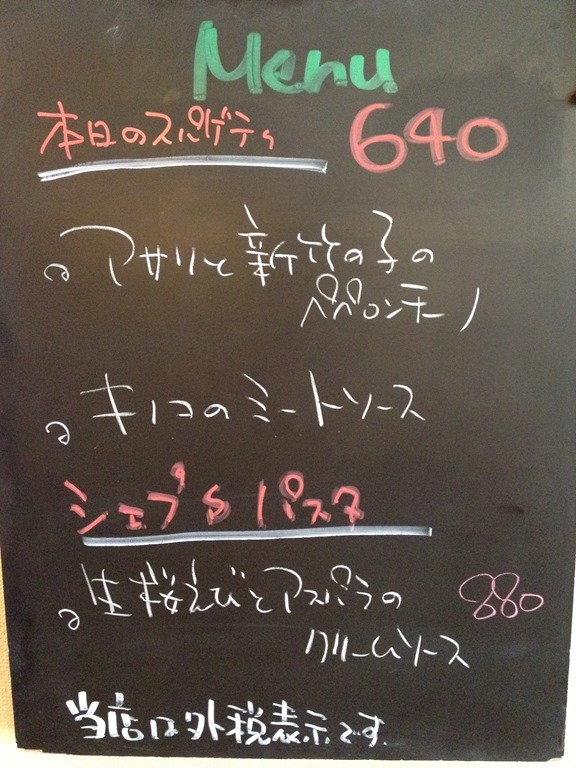 Menu
本日のスパゲティ 640
アサリと新竹の子の
ペペロンチーノ
キノコのミートソース
シェフ's パスタ
生桜えびとアスパラの 880
クリームソース
当店は外税表示です